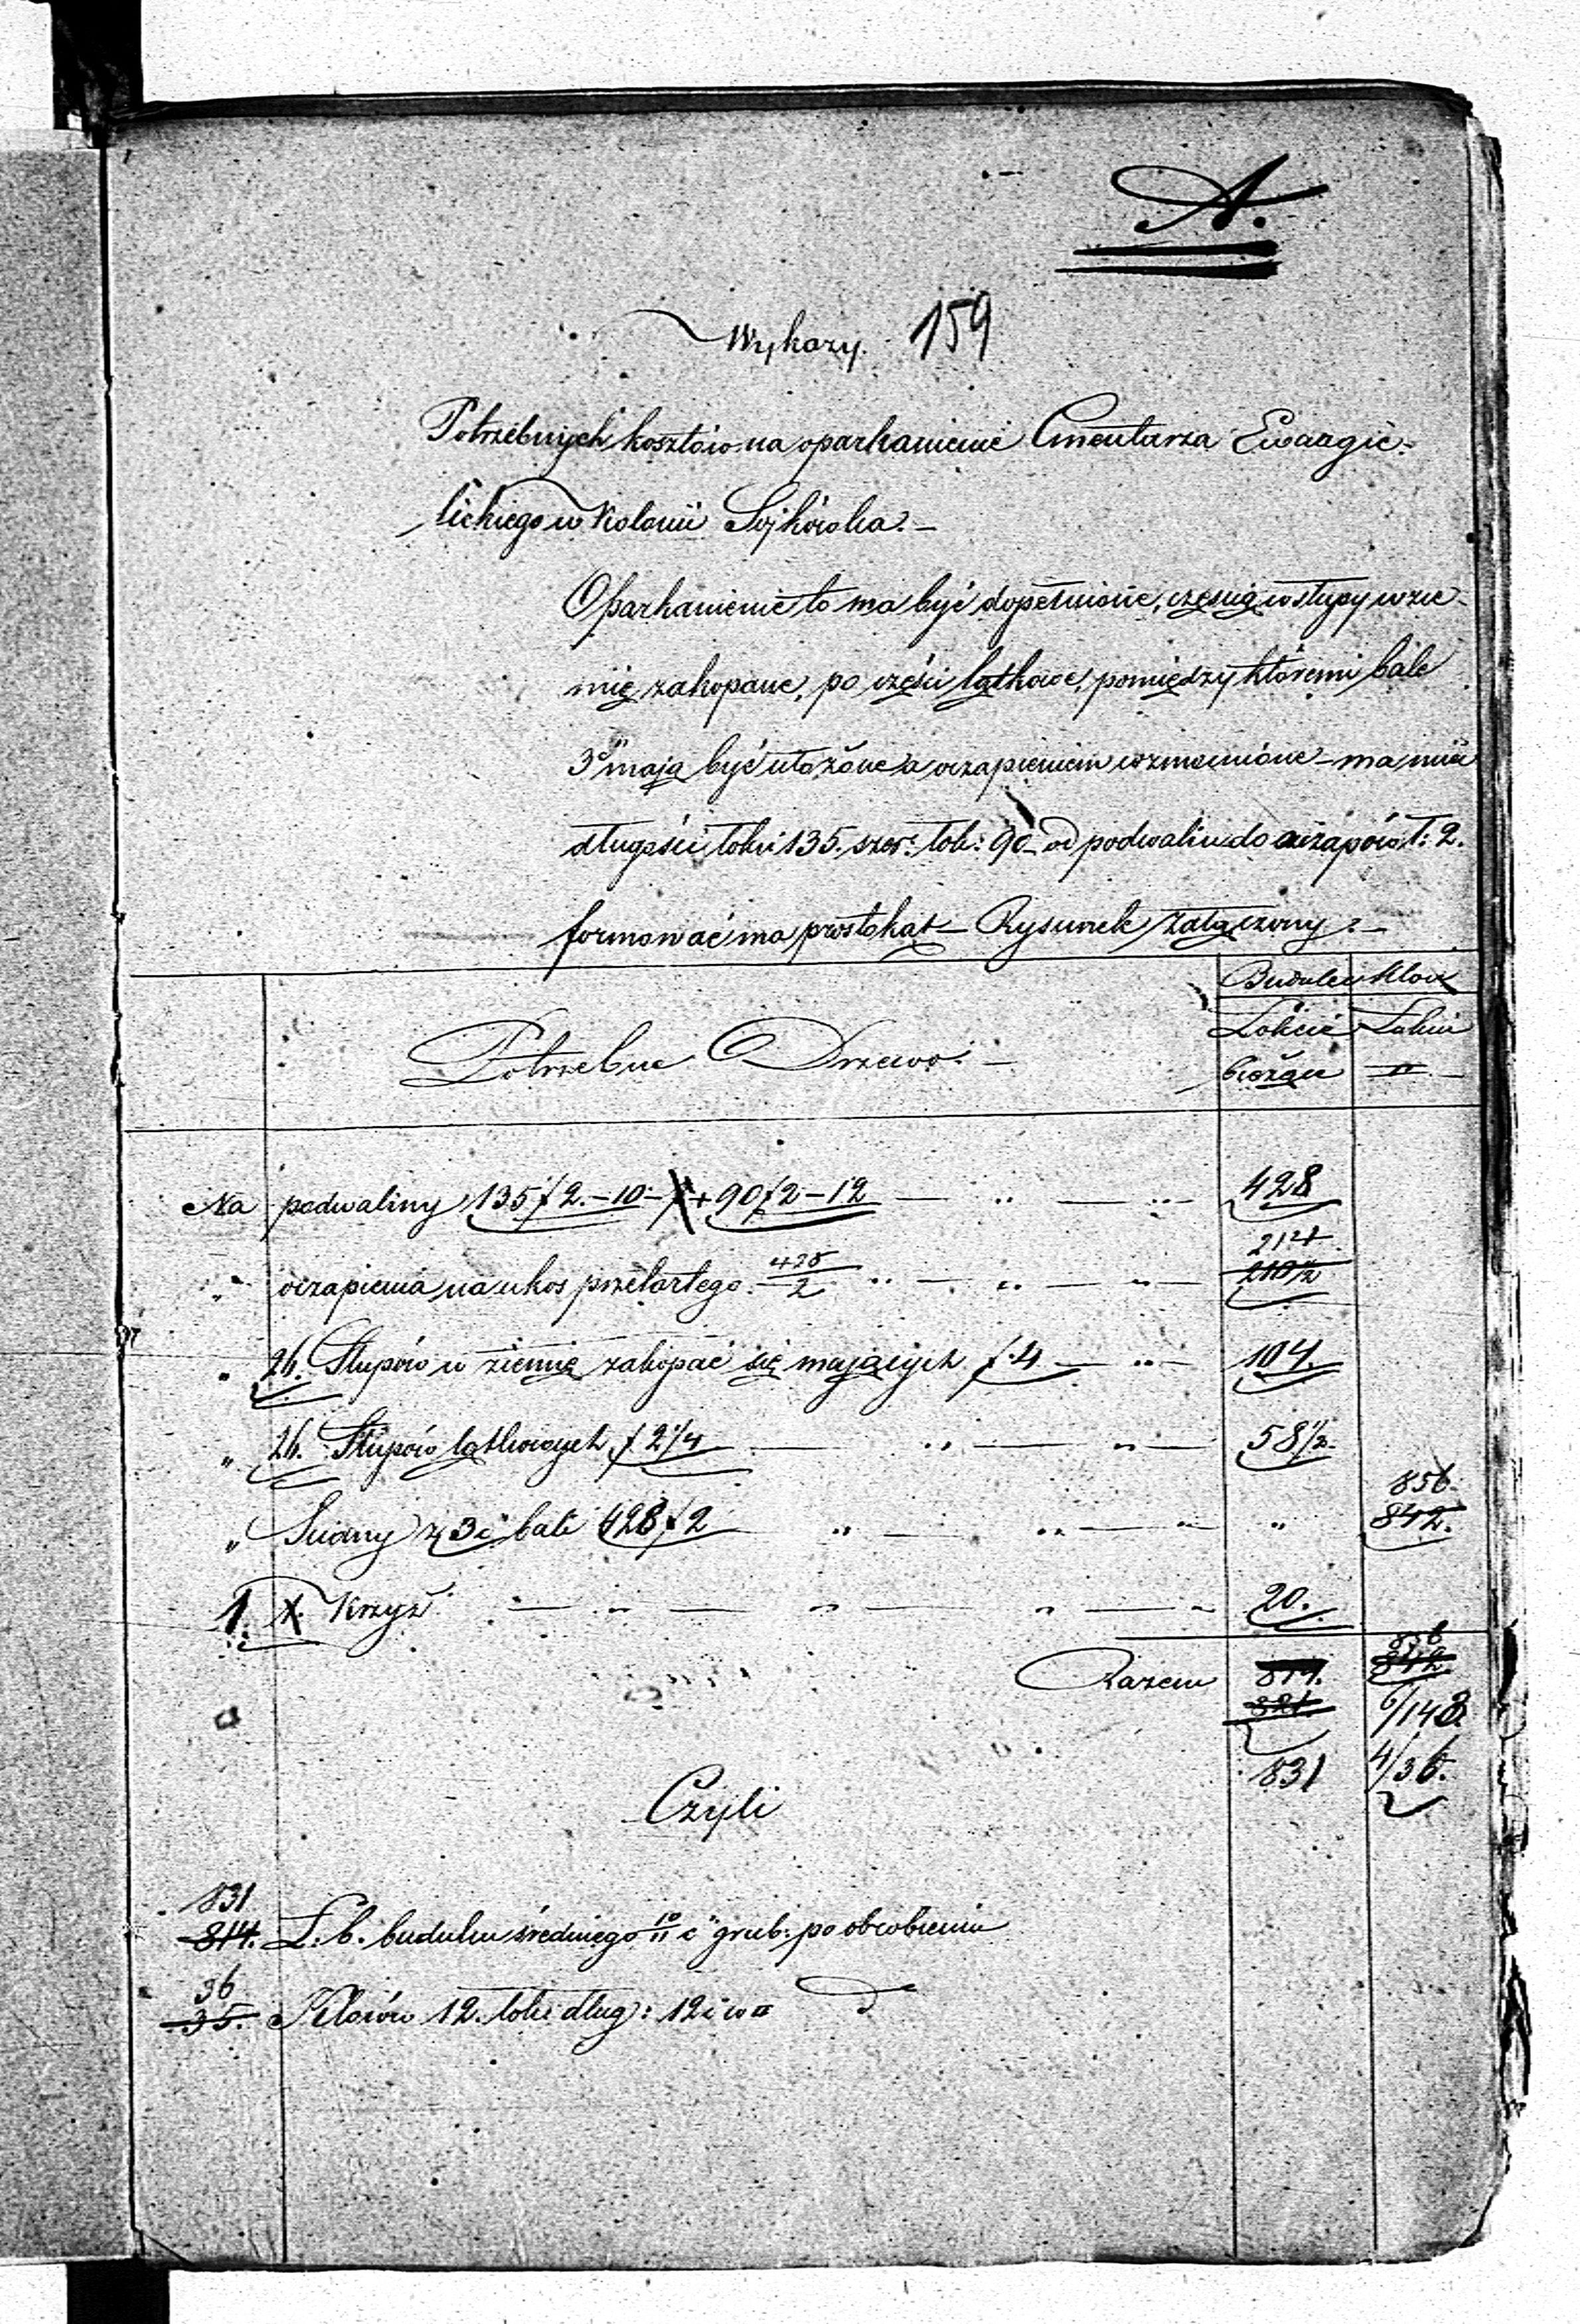 A.
Wykazy. 159
Potrzebnych kosztów na oparkanienie Cmentarza Ewangie-
lickiego w Kolonii Sójkówka.—
Oparkanienie to ma być dopełnione, częscią w słupy w zie-
mię zakopane, po części łątkowe, pomiędzy któremi bale
3c" mają być ułożone a oczapieniem wzmocnione — ma mieć
długości łokci 135, szer: łok: 90 — od podwalin do oczapów ł: 2.
formować ma prostokąt — Rysunek załączony.—
Potrzebne Drzewo.—
Budulcu Kloce
Łokcie Łokcie
bieżące "
Na podwaliny 135 f 2.–10– + 90 f 2–12 — " — " 428
" oczapienia na ukos przetartego 428/2 " — " — " — 214 210 1/2
" 26. Słupów w ziemię zakopać się mających f. 4 — " — 104.
" 26. Słupów łątkowych f 2 1/4 — " — " — 58 1/2.
" Ściany z 3c bali 428 f 2 — " — " — " " 856. 842.
1. X. Krzyż — " — " — " — 20.
Razem 814. 856 842.
824. 6/143.
831 4/36.
Czyli
831
814. Ł. b. budulcu średniego 10/11 c" grub: po obrobieniu
36
35. Kloców 12. łokci dług: 12